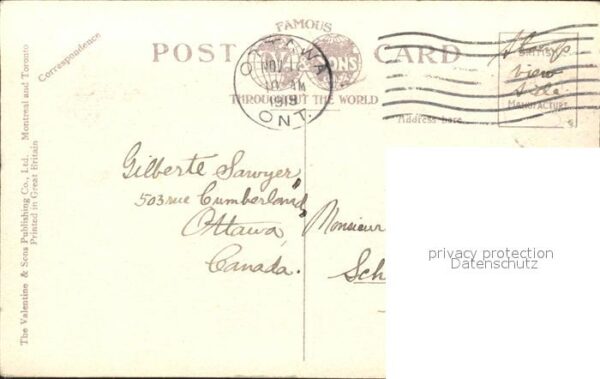 The Valentine & Sons Publishing Co., Ltd. Montreal and Toronto
Printed in Great Britain
Correspondence
FAMOUS
POST CARD
& SONS
THROUGHOUT THE WORLD
OTTAWA
NOV 17
10 AM
1919
ONT.
BRITISH
MANUFACTURE
Stamp
view
side
Address here
Gilberte Sawyer
503 rue Cumberland,
Ottawa,
Canada.
Monsieur
Sch
privacy protection
Datenschutz